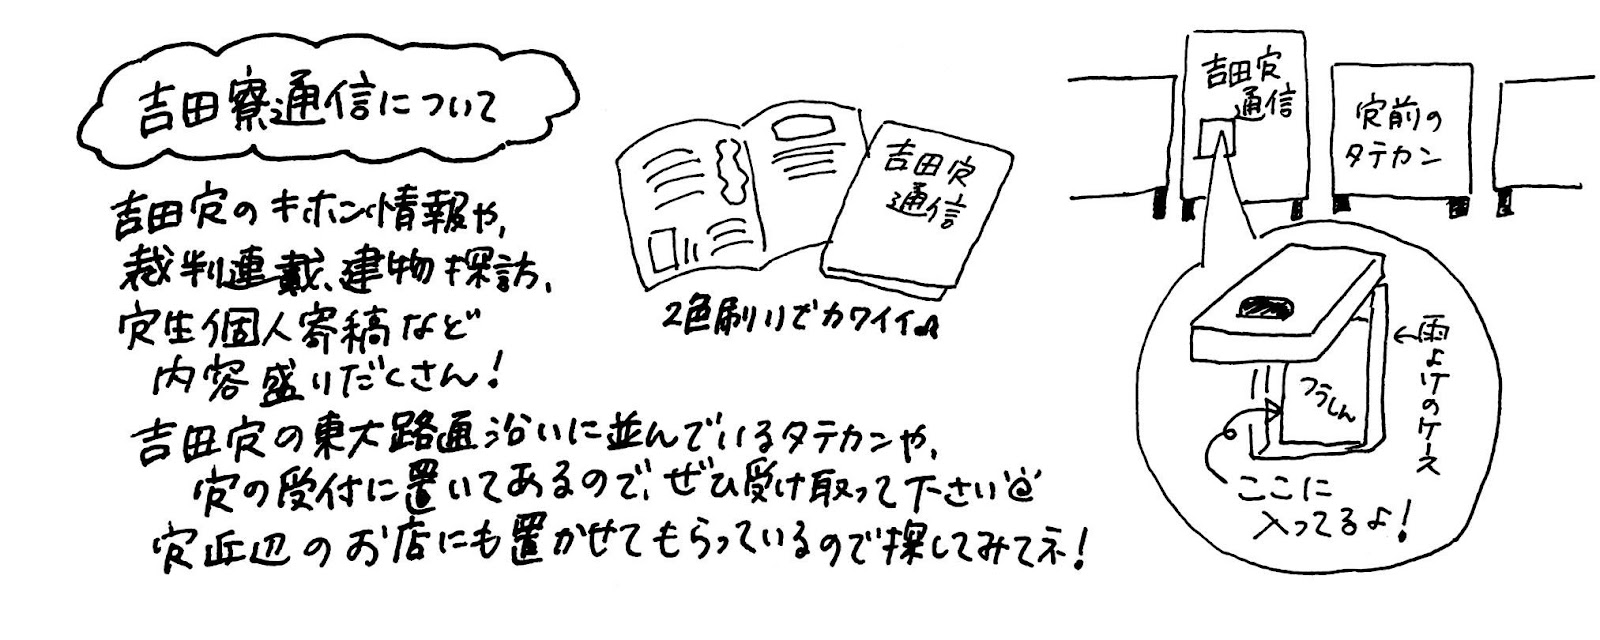 吉田寮通信について
吉田寮のキホン情報や、
裁判連載、建物探訪、
寮生個人寄稿など
内容盛りだくさん!
吉田寮の東大路通沿いに並んでいるタテカンや、
寮の受付に置いてあるので、ぜひ受け取って下さい
寮近辺のお店にも置かせてもらっているので探してみてネ!
吉田寮
通信
2色刷りでカワイイ♪
吉田寮
通信
寮前の
タテカン
つうしん
←雨よけのケース
ここに
入ってるよ!